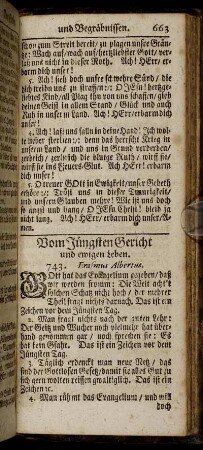 und Begräbnissen. 663
schon zum Streit bereit/ zu plagen unser Gräntze:
Wach auf/wach auf/hertzliebster Gott/ verlaß
uns nicht in dieser Noth. Ach! HErr/ erbarm
dich unser!
5. Ach! sieh doch unser sehr Sünd/ die
dich treiben uns zu straffen: O JEsu! hertzgeliebtes
Kind/all Tag thu von uns schaffen/gieb
deinen Geist in allem Stand/ Glück und auch
Ruh in unserm Land. Ach! HErr/ erbarm dich
unser!
4. Ach! laß uns falln in deine Hand! Ich wolte
lieber sterben: wenn das der Krieg in
unserm Land/ und uns in Grund verderben/
zerbrich/ zerbrich die blutge Ruth/ wirff sie/
wirff sie ins Feuers-Glut. Ach HErr! erbarm
dich unser!
5. O treuer GOtt in Ewigkeit/ unser Gebeth
erhöre: Tröst uns in dieser Traurigkeit/ und
unsern Glauben mehre! Wie ist uns doch
so angst und bang/ O JEsu Christ! bleib ja
nicht lang. Ach! HErr/ erbarm dich unser/
Amen.
Vom Jüngsten Gericht
und ewigen Leben.
743. Erasmus Alberus.
GOtt hat das Evangelium gegeben/ daß
wir werden fromm: Die Welt acht't
solchen Schatz nicht hoch/ der mehrer
Theil fragt nichts darnach. Das ist ein
Zeichen vor dem Jüngsten Tag.
2. Man fragt nichts nach der guten Lehr:
Der Geitz und Wucher noch vielmehr hat überhand
genommen gar/ noch sprechen sie: Es
hat kein Gefahr. Das ist ein Zeichen vor dem
Jüngsten Tag.
3. Täglich erdenckt man neue Netz/ das
sind der Gottlosen Gesetz/damit sie alles Gut zu
sich gern wolten reissen gewaltiglich. Das ist ein
Zeichen ꝛc.
4. Man rühmt das Evangelium/ und will
doch